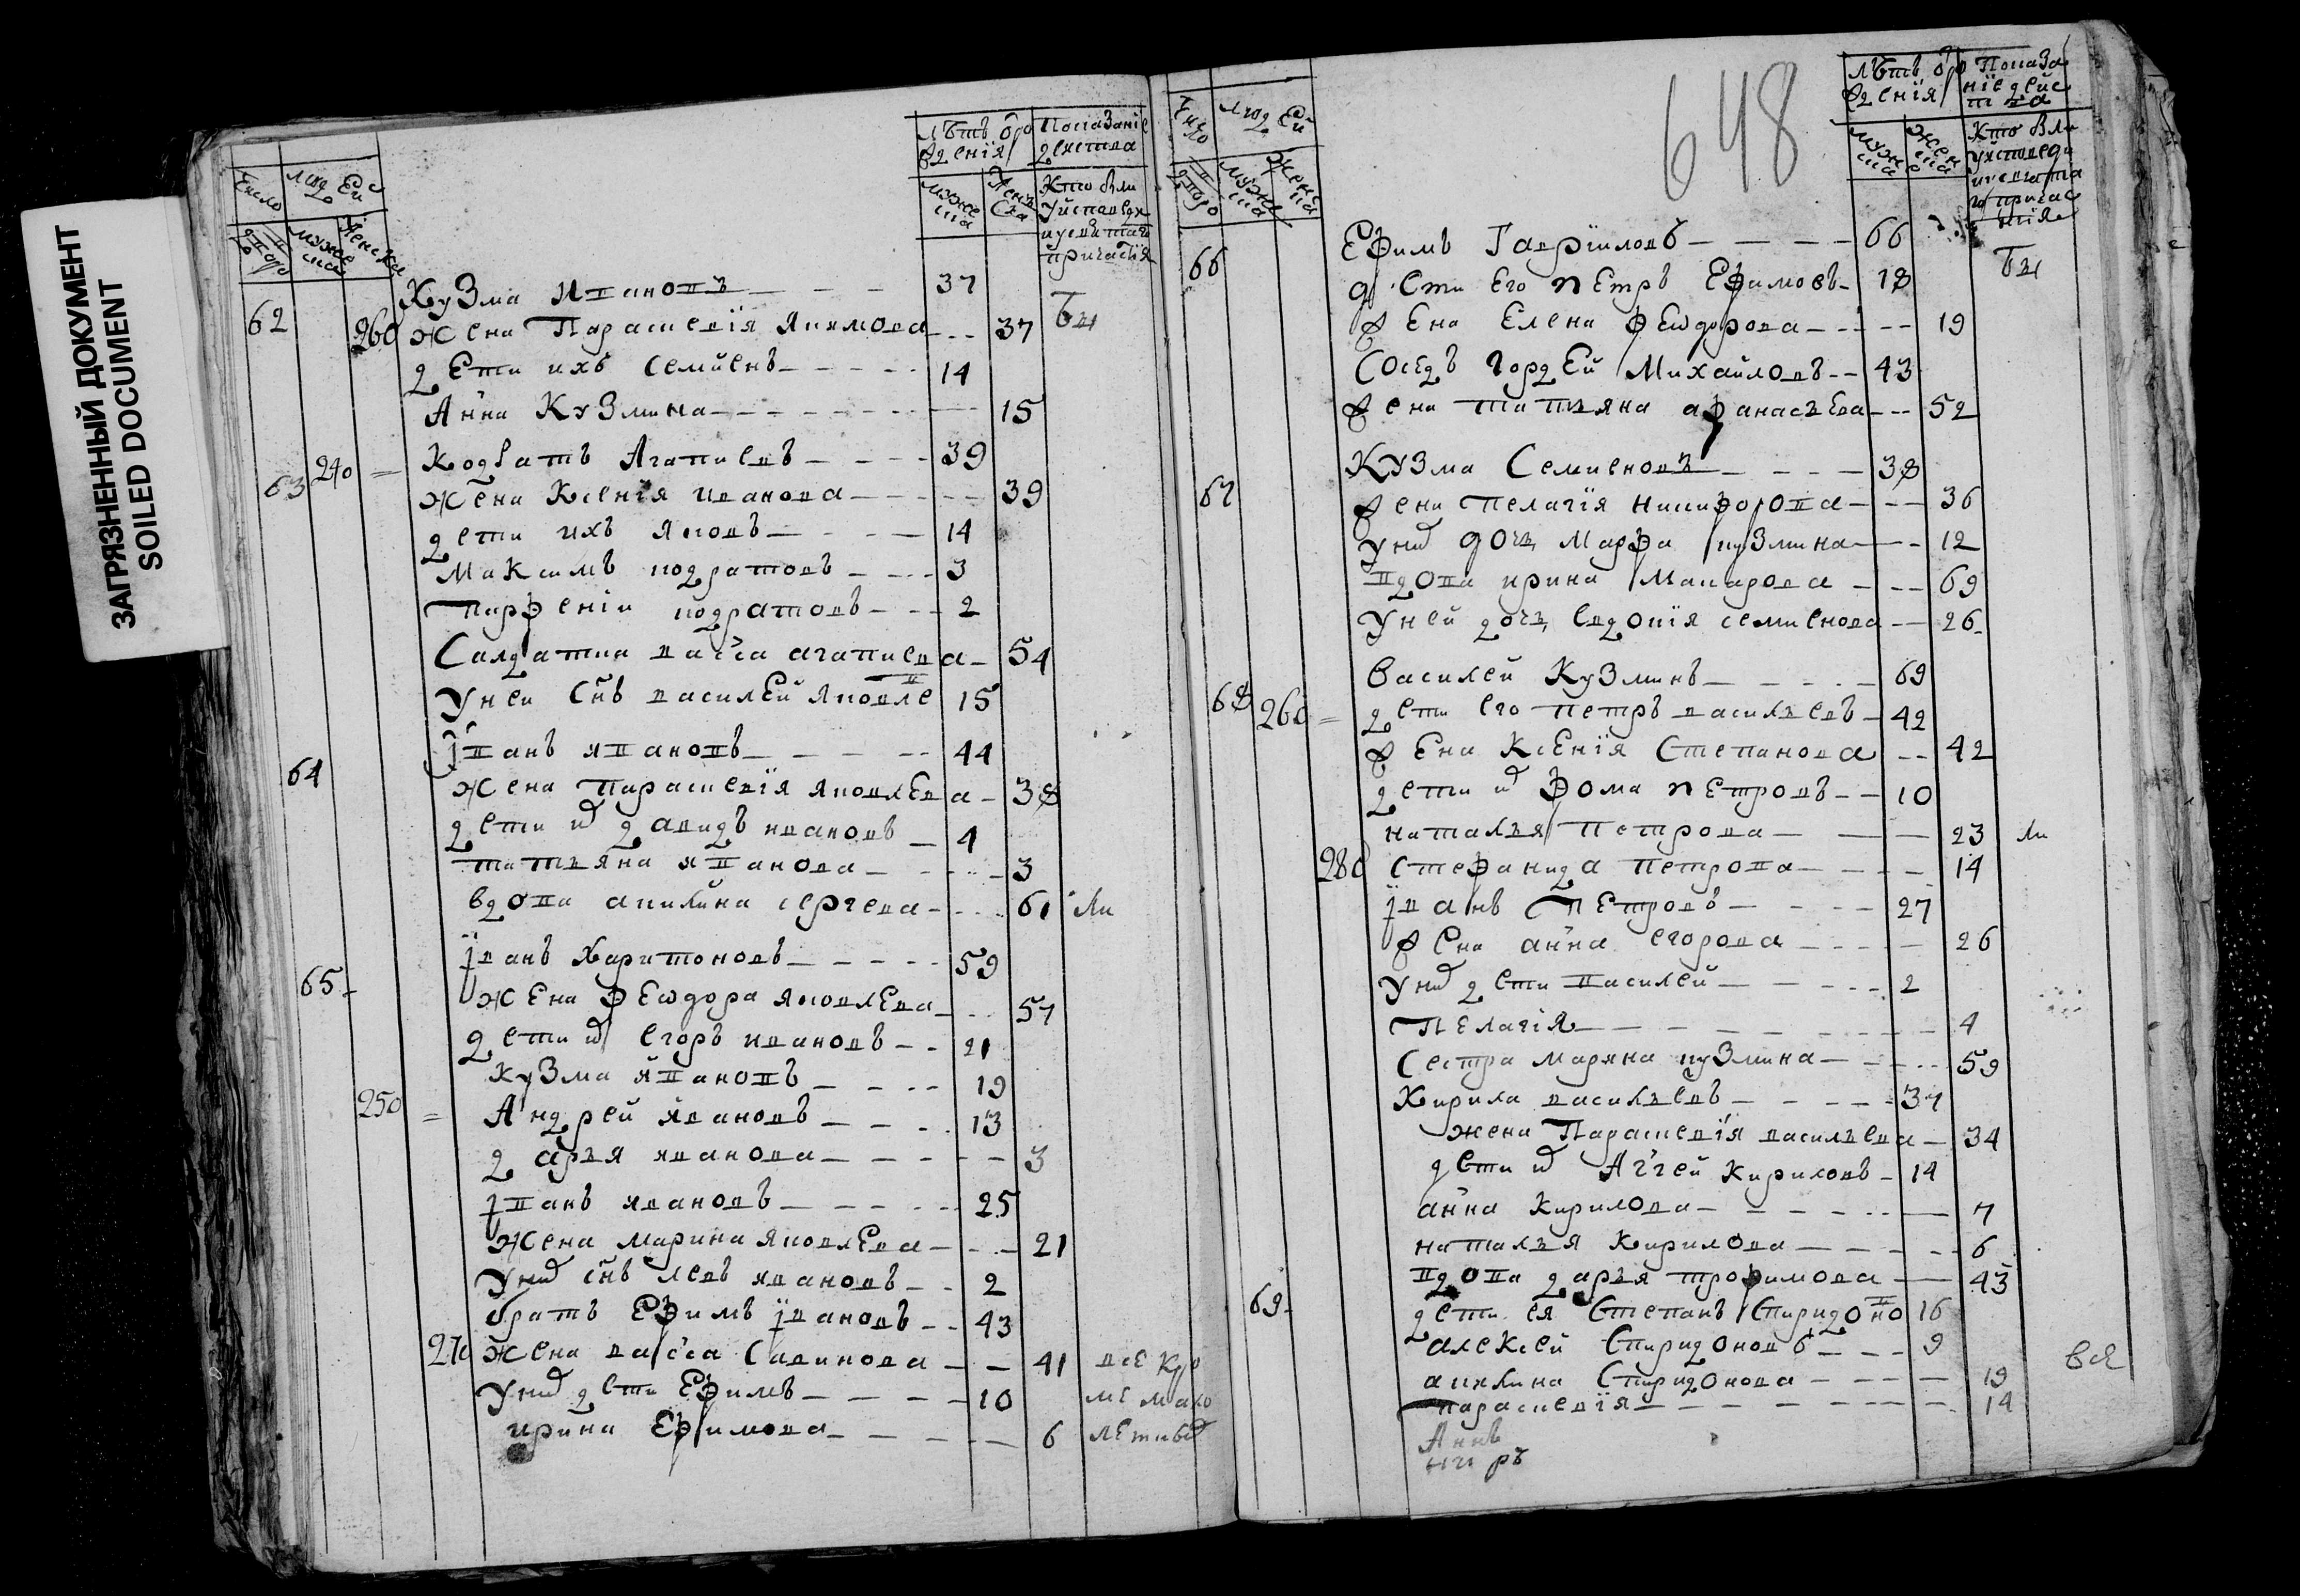 ЗАГРЯЗНЕННЫЙ ДОКУМЕНТ
SOILED DOCUMENT
Число
людей
лѣтъ ѿро
жденія
Показаніе
действа
дворо
мужеска
женска
мужеска
женска
Кто былъ
у исповеди
и святаго
причастія
62 Кузма Ивановъ 37
260 жена Параскевія Якимова 37 бы
дети ихъ Семиенъ 14
Анна Кузмина 15
63 240 Кодратъ Агапиевъ 39
жена Ксенія иванова 39
дети ихъ яковъ 14
Максимъ кодратовъ 3
Парфеніи кодратовъ 2
Салдатка васса агапиева 54
у неи снъ василей яковле 15
64 іванъ ивановъ 44
жена Параскевія яковлева 38
дети давидъ ивановъ 4
татьяна иванова 3
вдова акилина сергева 61
65 іванъ Харитоновъ 59
жена феѡдора яковлева 57
дети егоръ ивановъ 21
кузма ивановъ 19
250 Андрей ивановъ 13
дарья иванова 3
іванъ ивановъ 25
жена марина яковлева 21
снъ левъ ивановъ 2
братъ Ефимъ івановъ 43
270 жена васса Савинова 41
дети Ефимъ 10
ирина Ефимова 6
648
Число
людей
дворо
мужеска
женска
лѣтъ ѿро
жденія
Показа
ніе дейс
тва
мужеска
женска
Кто былъ
у исповеди
и святаго
причас
тія
66 Ефимъ Гавріиловъ 66
дети его петръ Ефимовъ 18 бы
жена Елена феѡдорова 19
Соседъ гордей Михайловъ 43
жена татьяна афанасьева 52
67 Кузма Семиеновъ 38
жена пелагія никифорова 36
дочь Марфа кузмина 12
вдова ирина Макарова 69
у ней дочь евдокія семиенова 26
68 Василей Кузминъ 69
260 дети его петръ васильевъ 42
жена Ксенія Степанова 42
дети фома петровъ 10
наталья Петрова 23
280 Стефанида петрова 14
іванъ Петровъ 27
жена анна егорова 26
дети василей 2
Пелагія 4
Сестра марина кузмина 59
Кирила васильевъ 37
жена Параскевія васильева 34
дети Аггей Кириловъ 14
анна Кирилова 7
наталья Кирилова 6
69 вдова дарья трофимова 43
дети ея Степанъ Спиридоно 16
алексей Спиридоновъ 9
акилина Спиридонова 19
параскевія 14